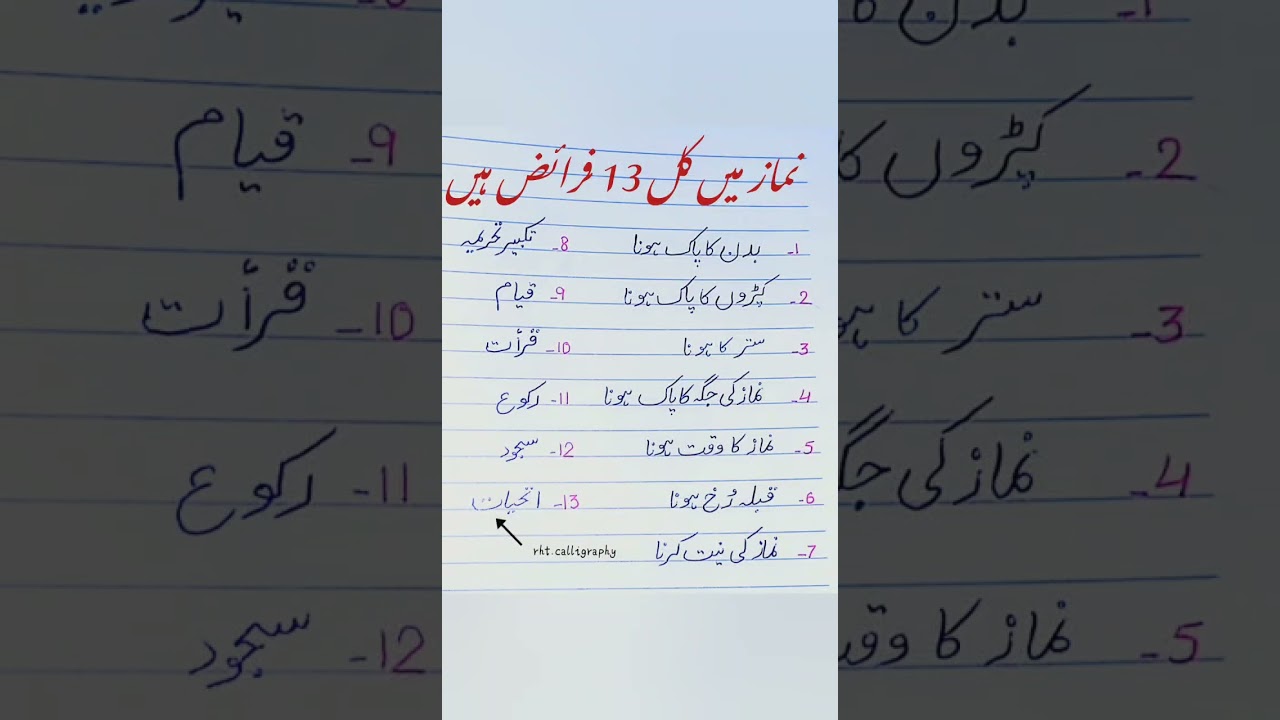 نماز میں کل 13 فرائض ہیں
1- بدن کا پاک ہونا
2- کپڑوں کا پاک ہونا
3- ستر کا ہونا
4- نماز کی جگہ کا پاک ہونا
5- نماز کا وقت ہونا
6- قبلہ رُخ ہونا
7- نماز کی نیت کرنا
8- تکبیر تحریمہ
9- قیام
10- قرأت
11- رکوع
12- سجود
13- التحیات
rht.calligraphy